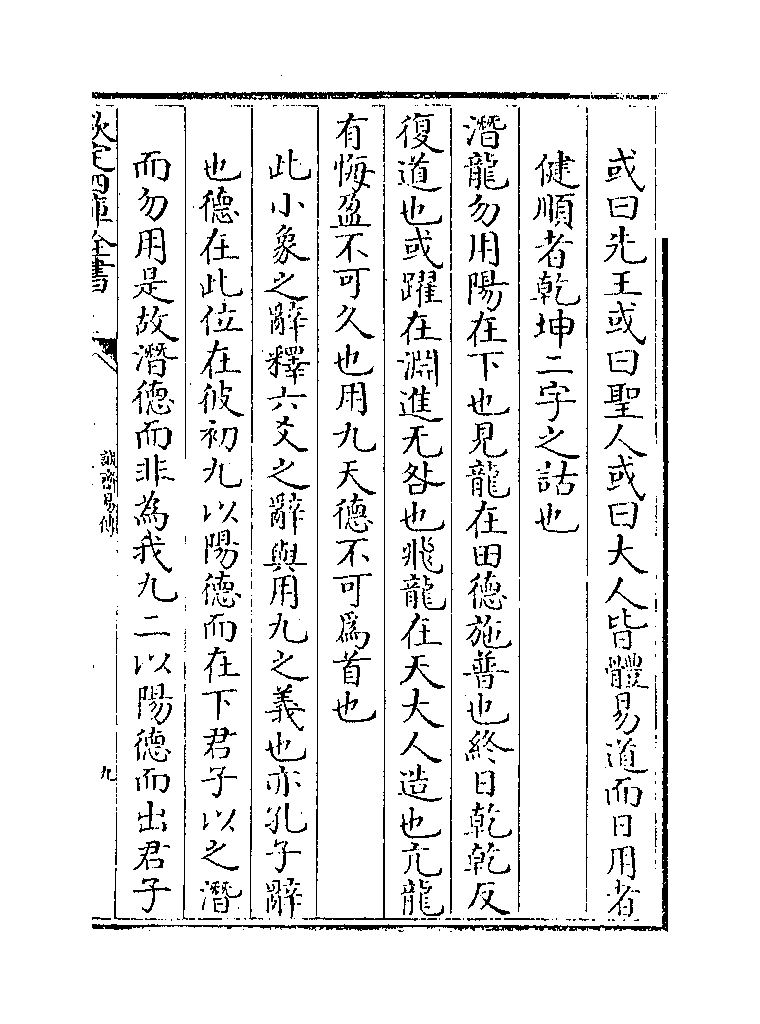 或曰先王或曰聖人或曰大人皆體易道而日用者
健順者乾坤二字之詁也
潛龍勿用陽在下也見龍在田德施普也終日乾乾反
復道也或躍在淵進无咎也飛龍在天大人造也亢龍
有悔盈不可久也用九天德不可爲首也
此小象之辭釋六爻之辭與用九之義也亦孔子辭
也德在此位在彼初九以陽德而在下君子以之潛
而勿用是故潛德而非為我九二以陽德而出君子
欽定四庫全書
誠齋易傳
九